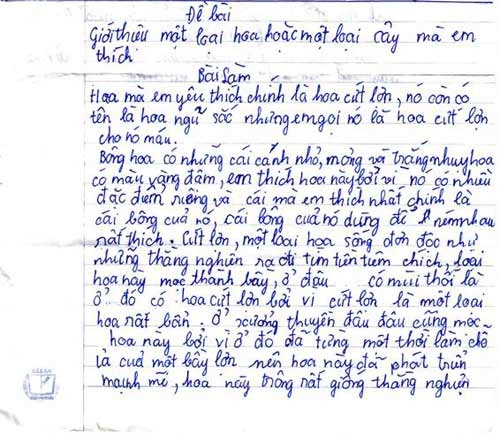 Đề bài
Giới thiệu một loại hoa hoặc một loại cây mà em
thích
Bài làm
Hoa mà em yêu thích chính là hoa cứt lợn, nó còn có
tên là hoa ngũ sắc nhưng em gọi nó là hoa cứt lợn
cho nó máu.
Bông hoa có những cái cánh nhỏ, mỏng và trắng nhuỵ hoa
có màu vàng đậm, em thích hoa này bởi vì nó có nhiều
đặc điểm riêng và cái mà em thích nhất chính là
cái bông của nó, cái bông của nó dùng để ném nhau
rất thích. Cứt lợn, một loài hoa sống đơn độc như
những thằng nghiện ra đi tìm tiền tiêm chích, loài
hoa này mọc thành bầy, ở đâu có mùi thối là
ở đó có hoa cứt lợn bởi vì cứt lợn là một loài
hoa rất bẩn. Ở xương thuyền đâu đâu cũng mọc
hoa này bởi vì ở đó đã từng một thời làm chỗ
ỉa của một bầy lợn nên hoa này đã phát triển
mạnh mẽ, hoa này trông rất giống thằng nghiện